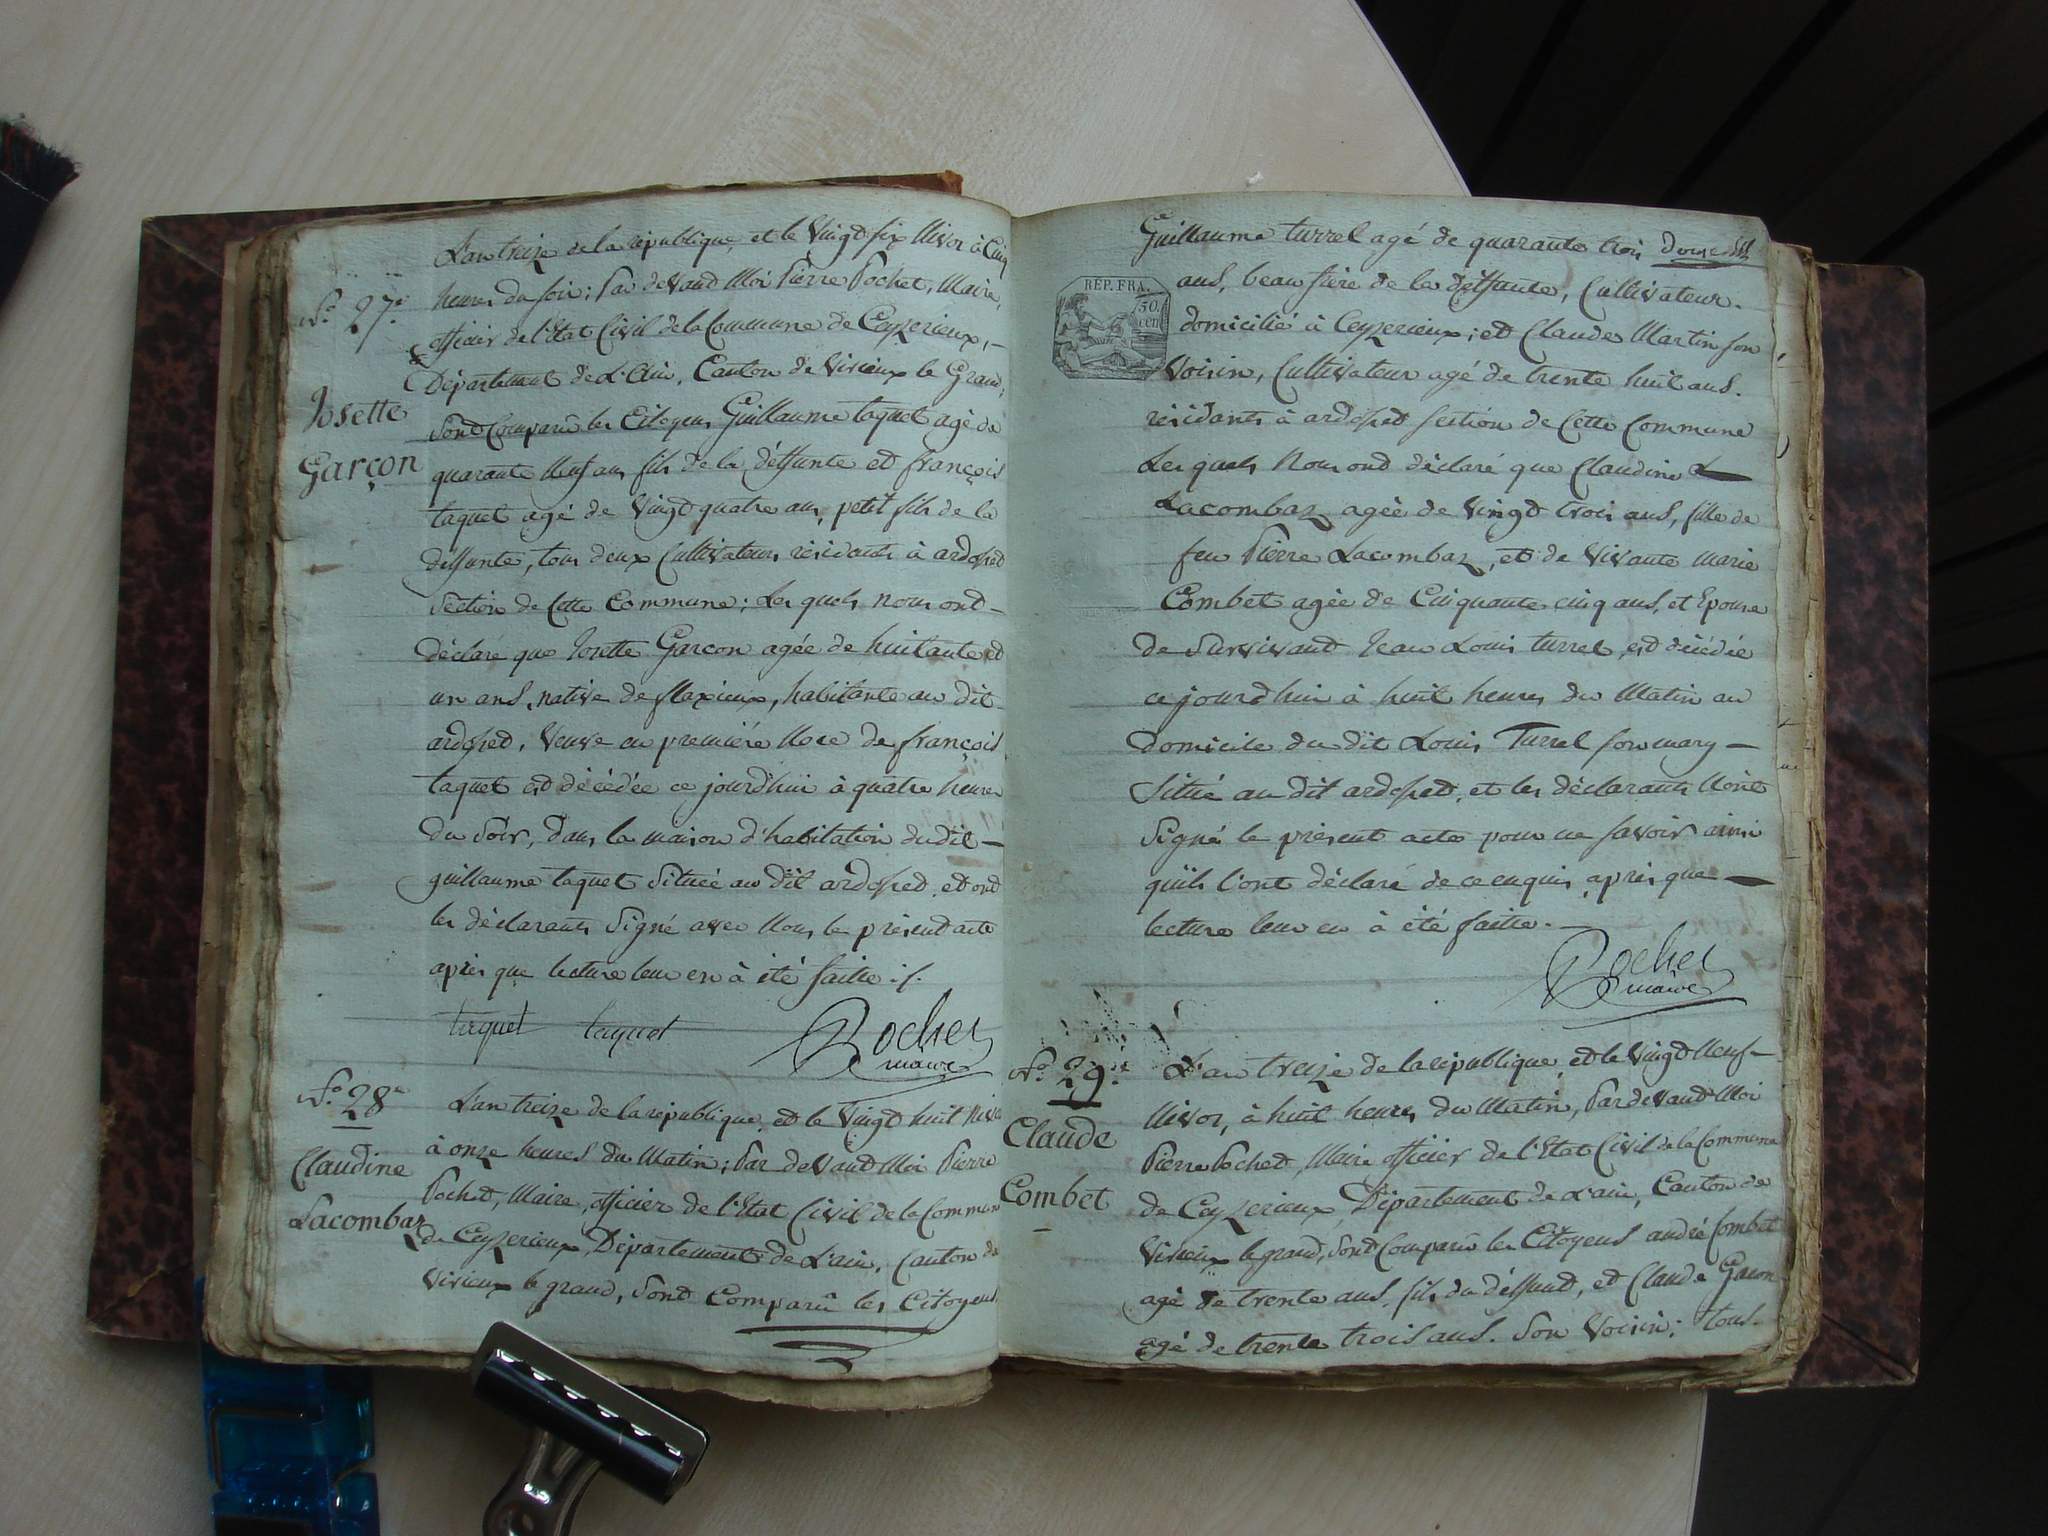 L'an treize de la république, et le Vingt six Nivos à Cinq
N.o 27.e
heures du soir; Par devand Moi Pierre Pochet, Maire,
officier de l'Etat Civil de la Commune de Ceyzerieux,
Département de L'Ain, Canton de Virieux le Grand,
Josette
Garçon
Sont Comparu les Citoyens Guillaume taquet agé de
quarante Neuf ans fils de la déffunte et françois
taquet agé de Vingt quatre ans, petit fils de la
déffunte, tous deux Cultivateurs résidants à ardosset
Section de Cette Commune; Les quels nous ont
déclaré que Josette Garcon agée de huitante et
un ans, native de flaxieux, habitante au dit
ardosset, Veuve en premiére Noce de françois
taquet est décédée ce jourd'hui à quatre heures
du Soir, dans la maison d'habitation dudit
guillaume taquet Située au dit ardosset, et ont
les déclarants Signé avec Nous le présent acte
après que lecture leur en à été faitte ./.
taquet taquet Pochet
maire
N.o 28.e
Claudine
Lacombaz
L'an treize de la république, et le Vingt huit Nivos
à onze heures du Matin; Par devand Moi Pierre
Pochet, Maire, officier de l'Etat Civil de la Commune
de Ceyzerieux, Département de L'ain, Canton de
Virieux le grand, Sont Comparû les Citoyens
Guillaume turrel agé de quarante trois
REP. FRA.
50.
cen
ans, beau frere de la déffunte, Cultivateur.
domicilié à Ceyzerieux; et Claude Martin son
Voisin, Cultivateur agé de trente huit ans.
résidants à ardosset section de Cette Commune
Les quels Nous ont déclaré que Claudine
Lacombaz agée de Vingt trois ans, fille de
feu Pierre Lacombaz, et de Vivante marie
Combet agée de Cinquante cinq ans, et Epouse
de Survivant Jean Louis turrel, est décédée
ce jourd'hui à huit heures du Matin au
domicile du dit Louis Turrel son mary
Situé au dit ardosset, et les déclarants N'ont
Signé le présent acte pour ne savoir ainsi
qu'ils l'ont déclaré de ce enquis, après que
lecture leur en à été faitte.
Pochet
maire
N.o 29.e
Claude
Combet
L'an treize de la république, et le Vingt Neuf
Nivos, à huit heures du Matin, Par devand Moi
Pierre Pochet, Maire officier de l'Etat Civil de la Commune
de Ceyzerieux, Département de L'ain, Canton de
Virieux le grand, Sont Comparû les Citoyens andré Combet
agé de trente ans, fils du déffunt, et Claude Gacon
agé de trente trois ans. Son Voisin; tous.